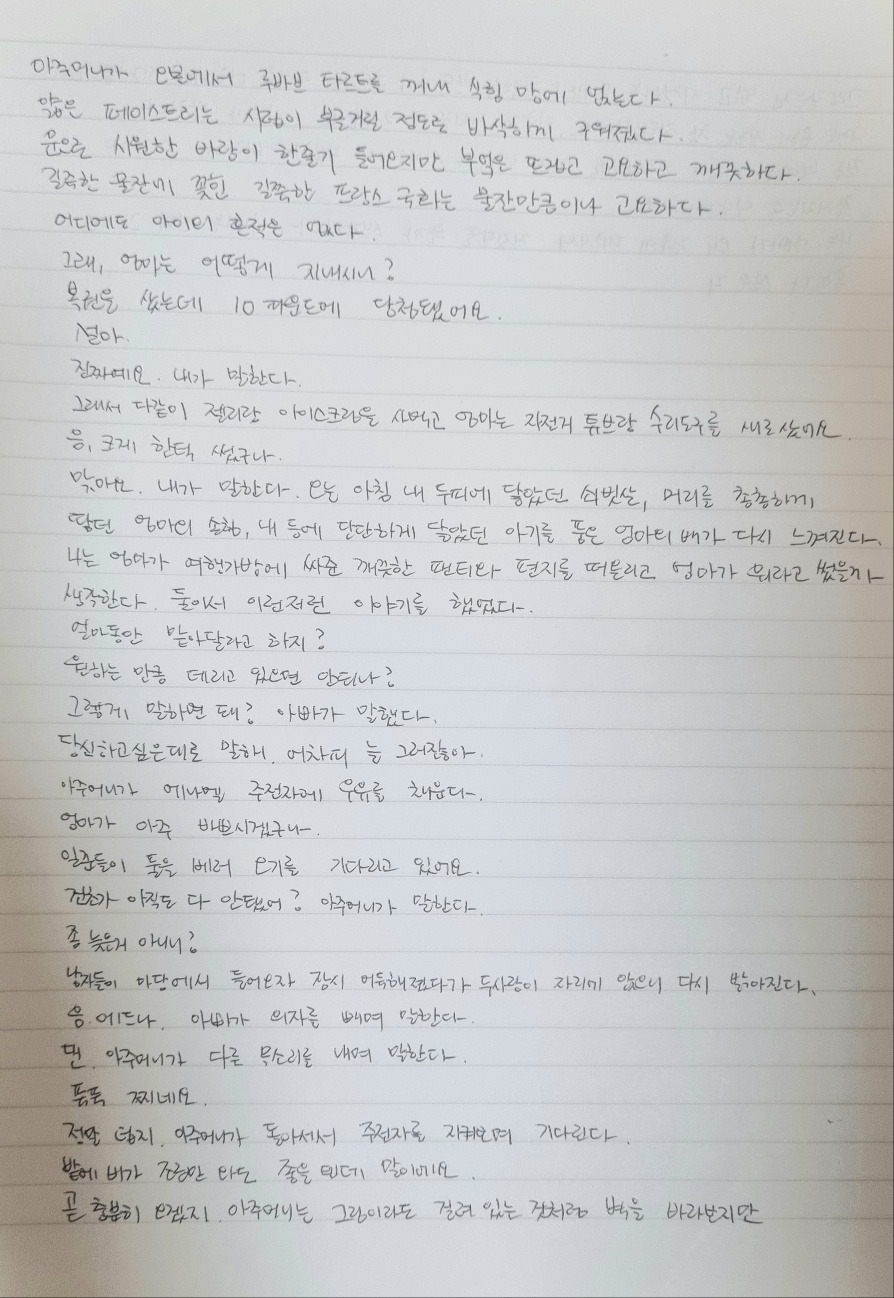 아주머니가 오븐에서 루바브 타르트를 꺼내 식힘 망에 얹는다.
얇은 페이스트리는 시럽이 부글거릴 정도로 바삭하게 구워졌다.
문으로 시원한 바람이 한줄기 들어오지만 부엌은 뜨겁고 고요하고 깨끗하다.
길쭉한 물잔에 꽂힌 길쭉한 프랑스 국화는 물잔만큼이나 고요하다.
어디에도 아이의 흔적은 없다.
그래, 엄마는 어떻게 지내시니?
복권을 샀는데 10파운드에 당첨됐어요.
설마.
진짜예요. 내가 말한다.
그래서 다같이 젤리랑 아이스크림을 사먹고 엄마는 자전거 튜브랑 수리도구를 새로 샀어요.
음, 크게 한턱 썼구나.
맞아요. 내가 말한다. 오늘 아침 내 두피에 닿았던 쇠빗살, 머리를 촘촘하게
땋던 엄마의 손힘, 내 등에 단단하게 닿았던 아기를 품은 엄마의 배가 다시 느껴진다.
나는 엄마가 여행가방에 싸준 깨끗한 팬티와 편지를 떠올리고 엄마가 뭐라고 썼을까
생각한다. 둘이서 이런저런 이야기를 했었다.
얼마동안 맡아달라고 하지?
원하는 만큼 데리고 있으면 안되나?
그렇게 말하면 돼? 아빠가 말했다.
당신하고싶은대로 말해. 어차피 늘 그러잖아.
아주머니가 에나멜 주전자에 우유를 채운다.
엄마가 아주 바쁘시겠구나.
일꾼들이 풀을 베러 오기를 기다리고 있어요.
건초가 아직도 다 안됐어? 아주머니가 말한다.
좀 늦은거 아니니?
남자들이 마당에서 들어오자 잠시 어둑해졌다가 두사람이 자리에 앉으니 다시 밝아진다.
음. 에드나, 아빠가 의자를 빼며 말한다.
댄. 아주머니가 다른 목소리를 내며 말한다.
푹푹 찌네요.
정말 덥지. 아주머니가 돌아서서 주전자를 지켜보며 기다린다.
밭에 비가 조금만 와도 좋을 텐데 말이에요.
곧 충분히 오겠지. 아주머니는 그림이라도 걸려 있는 것처럼 벽을 바라보지만